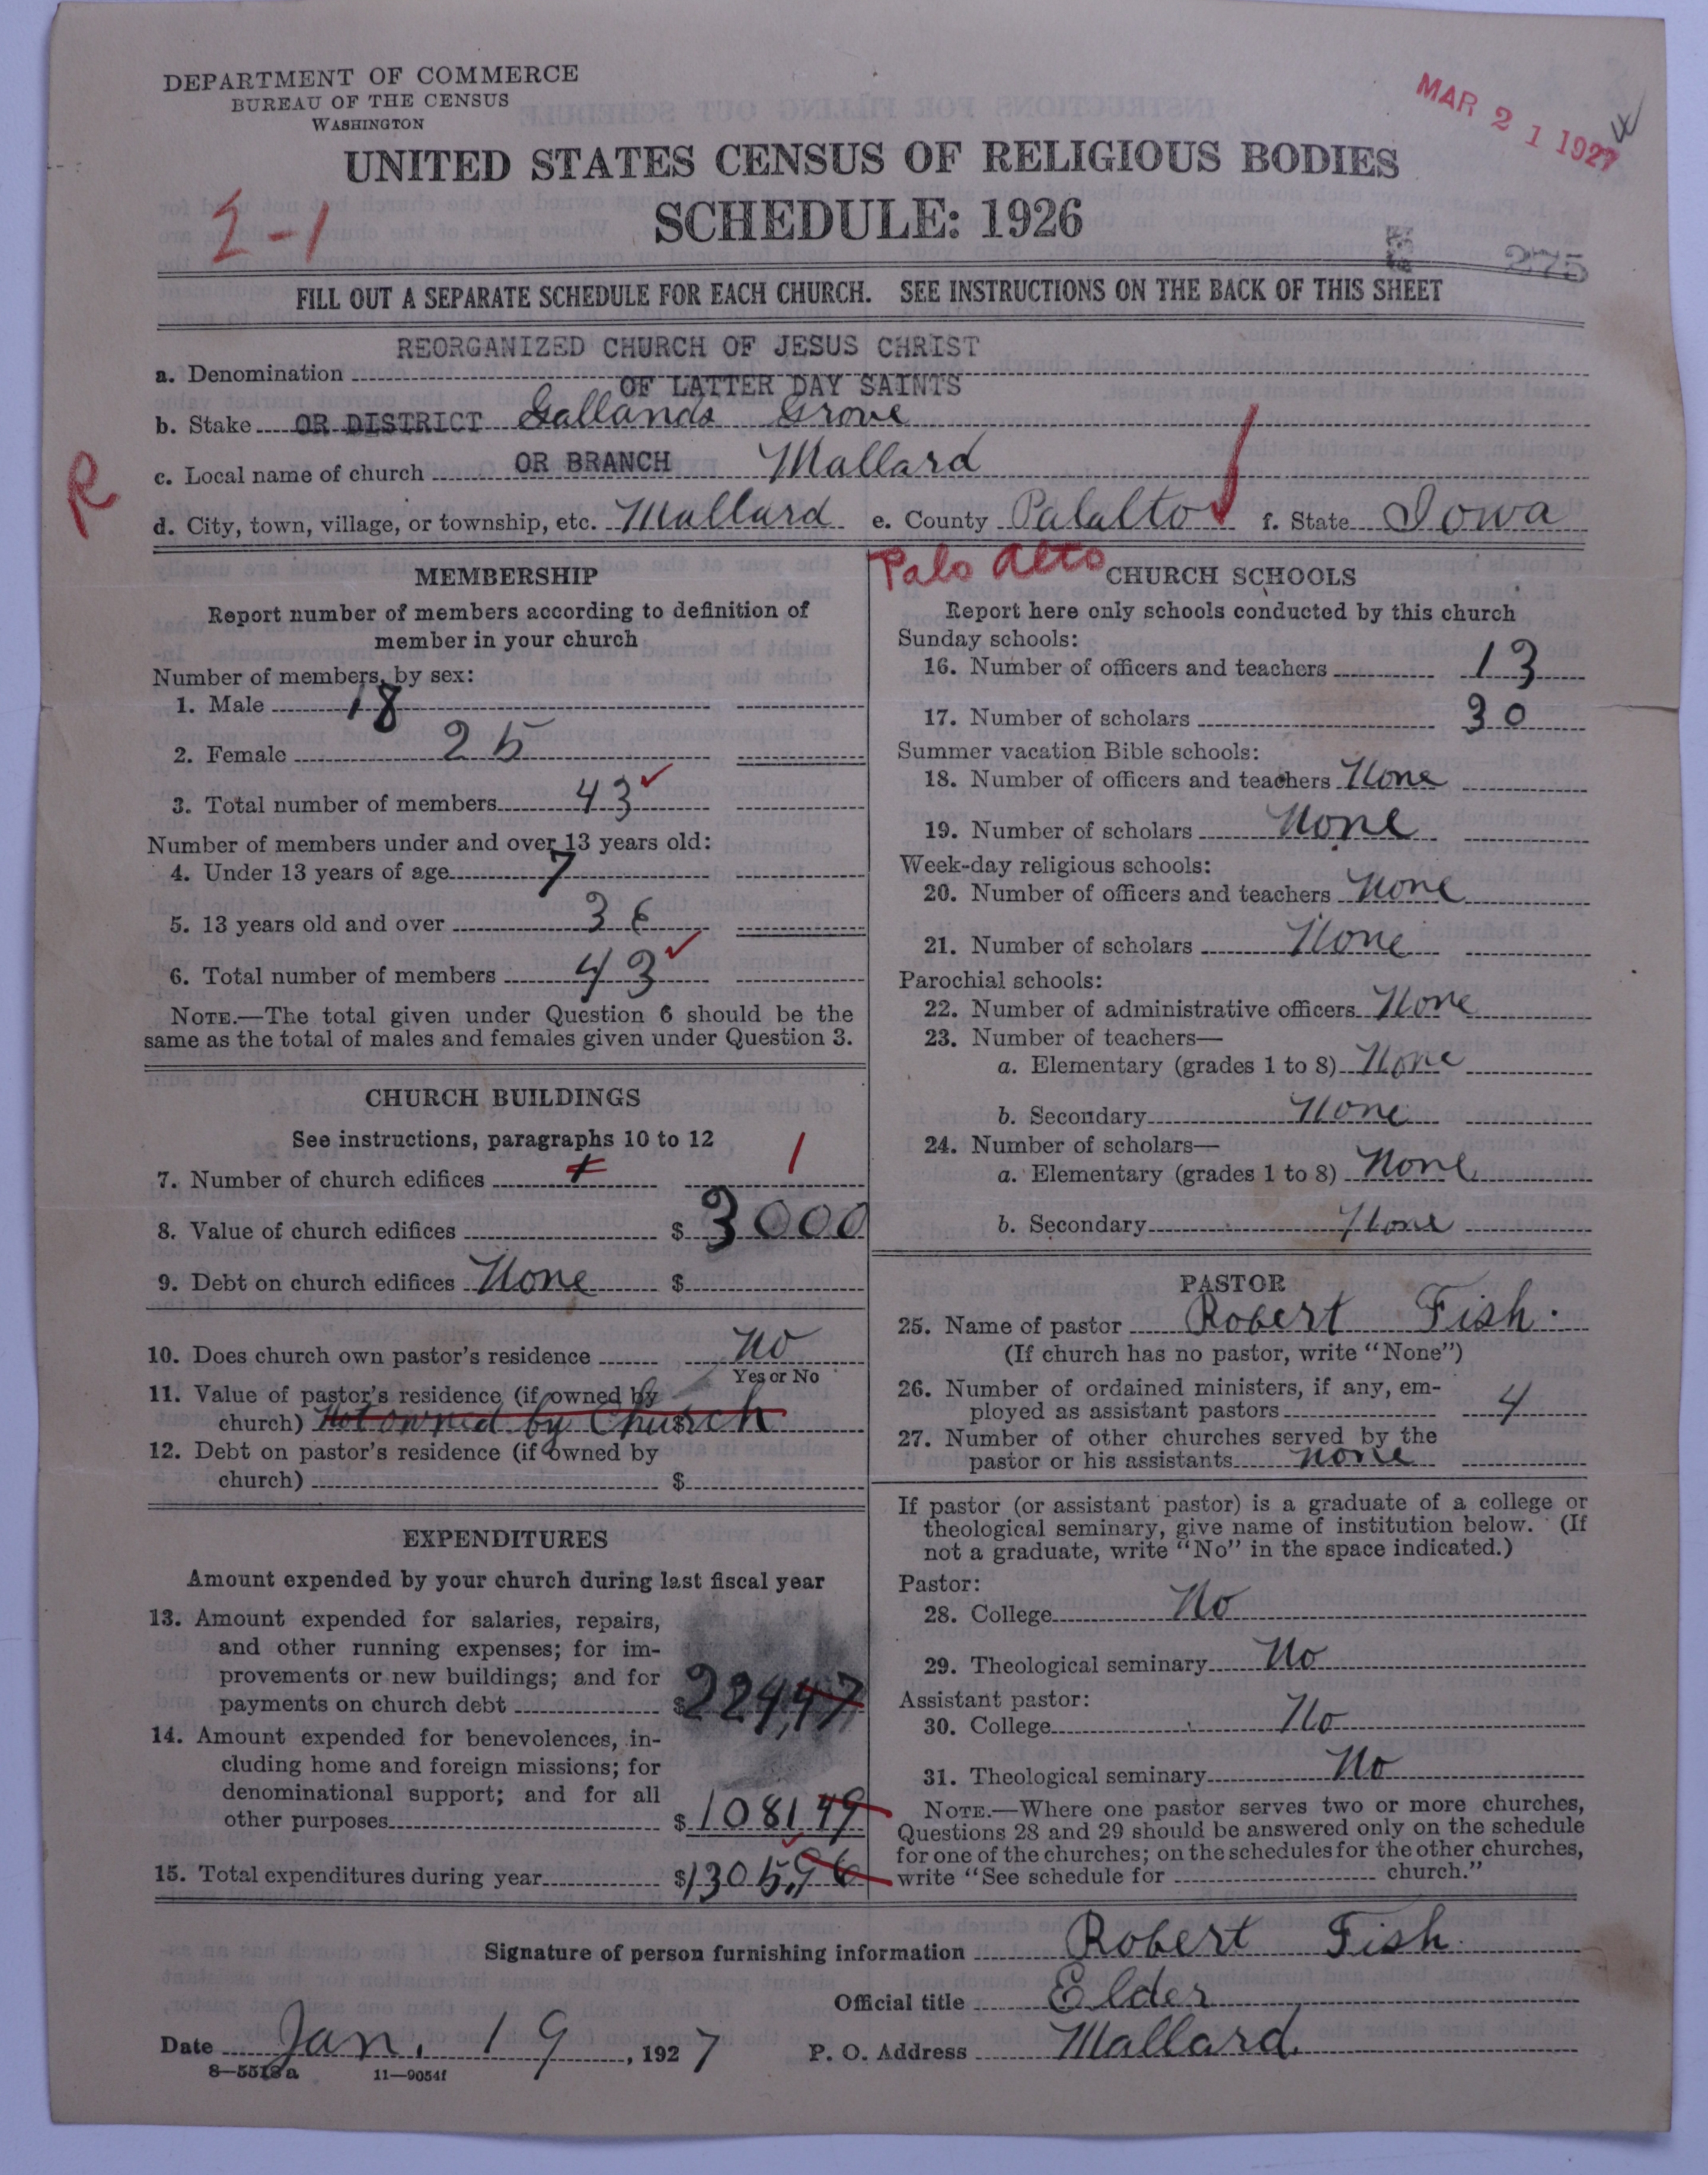 DEPARTMENT OF COMMERCE
BUREAU OF THE CENSUS
WASHINGTON
MAR 21 1927
UNITED STATES CENSUS OF RELIGIOUS BODIES
SCHEDULE: 1926
275
FILL OUT A SEPARATE SCHEDULE FOR EACH CHURCH. SEE INSTRUCTIONS ON THE BACK OF THIS SHEET
REORGANIZED CHURCH OF JESUS CHRIST
a. Denomination
OF LATTER DAY SAINTS
b. Stake OR DISTRICT Gallands Grove
c. Local name of church OR BRANCH Mallard
R
d. City, town, village, or township, etc. Mallard e. County Palalto f. State Iowa
Palo Alto
MEMBERSHIP
Report number of members according to definition of
member in your church
Number of members, by sex:
1. Male 18
2. Female 25
3. Total number of members 43
Number of members under and over 13 years old:
4. Under 13 years of age 7
5. 13 years old and over 36
6. Total number of members 43
NOTE.—The total given under Question 6 should be the
same as the total of males and females given under Question 3.
CHURCH BUILDINGS
See instructions, paragraphs 10 to 12
7. Number of church edifices 1
8. Value of church edifices $ 3000
9. Debt on church edifices None $
10. Does church own pastor's residence No
Yes or No
11. Value of pastor's residence (if owned by
church) Not owned by Church $
12. Debt on pastor's residence (if owned by
church) $
EXPENDITURES
Amount expended by your church during last fiscal year
13. Amount expended for salaries, repairs,
and other running expenses; for im-
provements or new buildings; and for
payments on church debt $ 224,47
14. Amount expended for benevolences, in-
cluding home and foreign missions; for
denominational support; and for all
other purposes $ 1081 49
15. Total expenditures during year $ 1305,96
CHURCH SCHOOLS
Report here only schools conducted by this church
Sunday schools:
16. Number of officers and teachers 13
17. Number of scholars 30
Summer vacation Bible schools:
18. Number of officers and teachers None
19. Number of scholars None
Week-day religious schools:
20. Number of officers and teachers None
21. Number of scholars None
Parochial schools:
22. Number of administrative officers None
23. Number of teachers—
a. Elementary (grades 1 to 8) None
b. Secondary None
24. Number of scholars—
a. Elementary (grades 1 to 8) None
b. Secondary None
PASTOR
25. Name of pastor Robert Fish.
(If church has no pastor, write "None")
26. Number of ordained ministers, if any, em-
ployed as assistant pastors 4
27. Number of other churches served by the
pastor or his assistants None
If pastor (or assistant pastor) is a graduate of a college or
theological seminary, give name of institution below. (If
not a graduate, write "No" in the space indicated.)
Pastor:
28. College No
29. Theological seminary No
Assistant pastor:
30. College No
31. Theological seminary No
NOTE.—Where one pastor serves two or more churches,
Questions 28 and 29 should be answered only on the schedule
for one of the churches; on the schedules for the other churches,
write "See schedule for church."
Signature of person furnishing information Robert Fish.
Official title Elder
Date Jan. 19, 1927 P. O. Address Mallard.
8—5518a 11—9054f